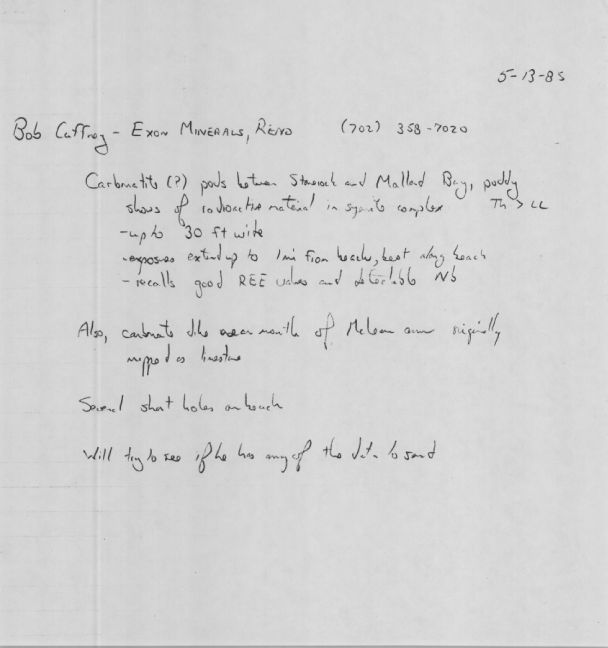 5-13-85
Bob Caffrey - Exon Minerals, Reno (702) 358-7020
Carbonatite (?) pods between Stonerock and Mallard Bay, poddy
shows of radioactive material in syenite complex Th > U
- up to 30 ft wide
- exposures extend up to 1 mi from beach, best along beach
- recalls good REE values and detectable Nb
Also, carbonate dike near mouth of McLean arm originally
mapped as limestone
Several short holes on beach
Will try to see if he has any of the data to send